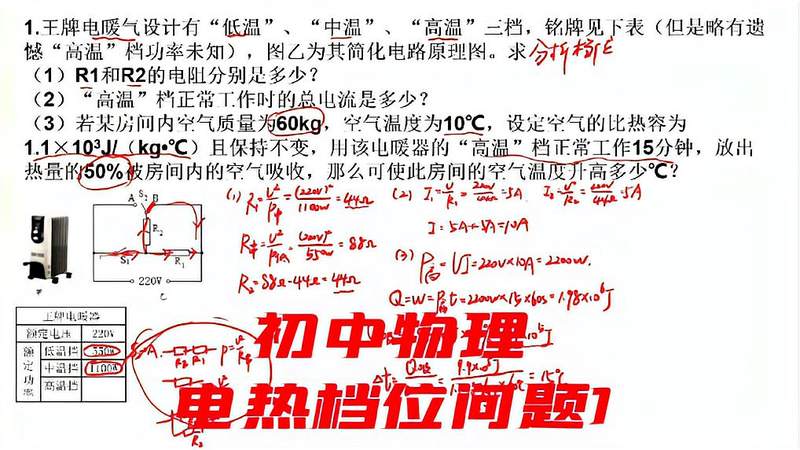 1.王牌电暖气设计有“低温”、“中温”、“高温”三档，铭牌见下表（但是略有遗
憾“高温”档功率未知），图乙为其简化电路原理图。求 分析档位
（1）R1和R2的电阻分别是多少？
（2）“高温”档正常工作时的总电流是多少？
（3）若某房间内空气质量为60kg，空气温度为10℃，设定空气的比热容为
1.1×10³J/（kg•℃）且保持不变，用该电暖器的“高温”档正常工作15分钟，放出
热量的50%被房间内的空气吸收，那么可使此房间的空气温度升高多少℃？
A S₂ B
R₂
S₁ R₁
220V
乙
王牌电暖器
额定电压 220V
额定功率 低温挡 550W
中温挡 1100W
高温挡
(1) R₁=U²/P中=(220V)²/1100W=44Ω
R串=U²/P低=(220V)²/550W=88Ω
R₂=88Ω-44Ω=44Ω
(2) I₁=U/R₁=220V/44Ω=5A I₂=U/R₂=220V/44Ω=5A
I=5A+5A=10A
(3) P高=UI=220V×10A=2200W.
Q=W=P高t=2200W×15×60s=1.98×10⁶J
=15℃
R₂ R₁
初中物理
电热档位问题1